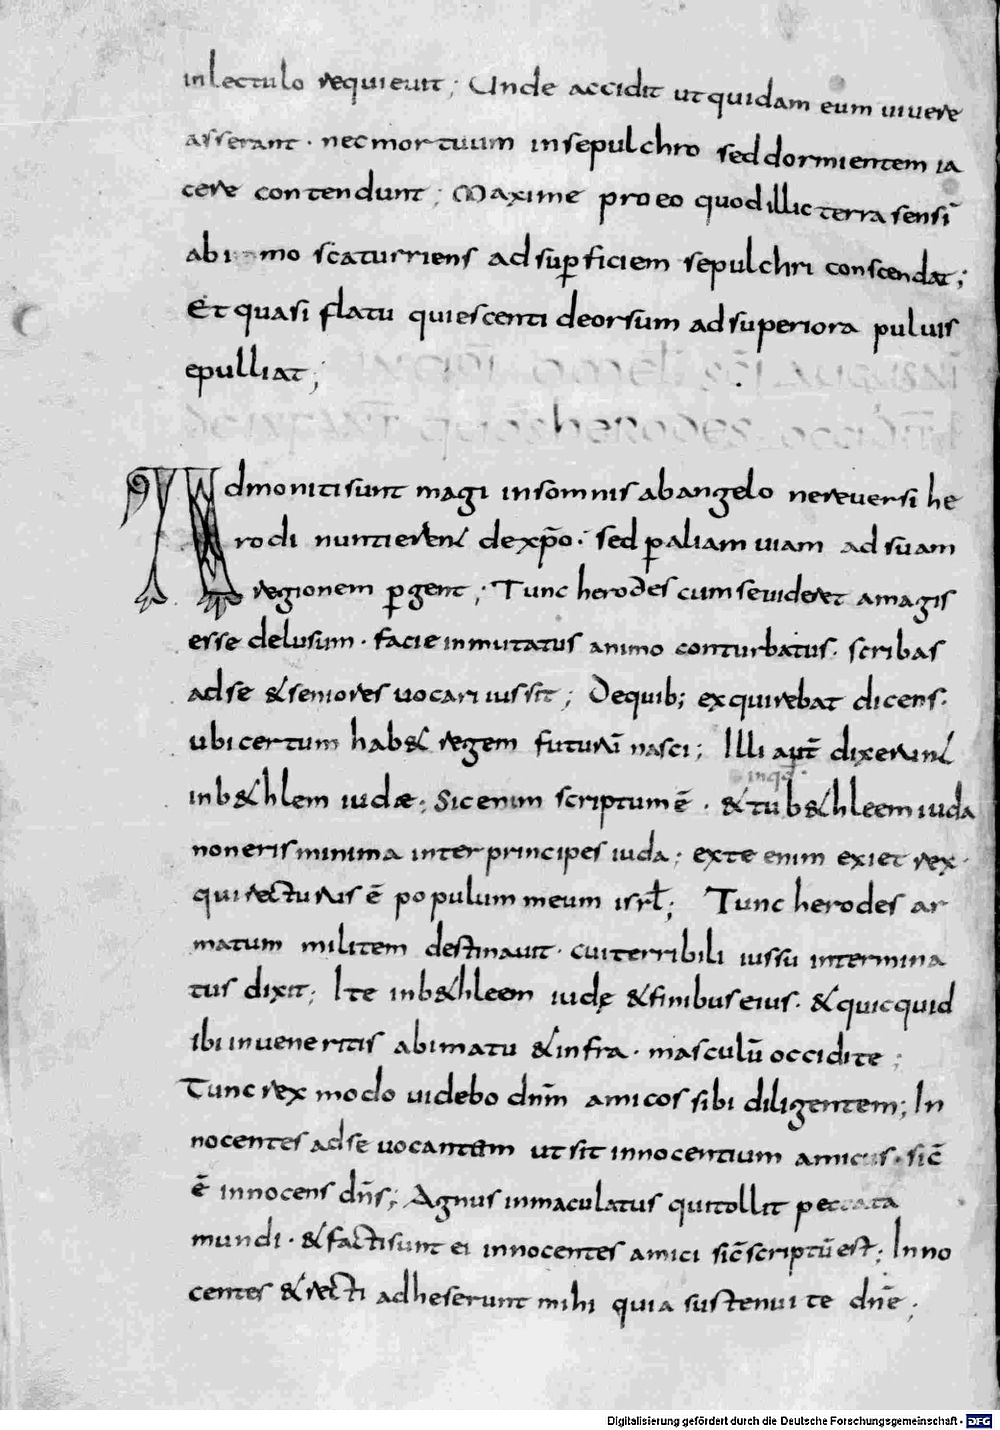 in lectulo requieuit ; Unde accidit ut quidam eum uiuere
asserant · nec mortuum in sepulchro sed dormientem ia
cere contendunt ; Maxime pro eo quod illic terra sensī
ab imo scaturriens ad suꝑficiem sepulchri conscendat ;
Et quasi flatu quiescenti deorsum ad superiora puluis
epulliat ;
INCIPĪ OMEL SC̄I AUGUSTINI
DE INFANT̄ quos herodes occidit
Admoniti sunt magi in somnis ab angelo ne reuersi he
rodi nuntierent de xp̄o · sed ꝑ aliam uiam ad suam
regionem ꝑgent ; Tunc herodes cum se uideret a magis
esse delusum · facie inmutatus animo conturbatus · scribas
ad se & seniores uocari iussit ; De quib; exquirebat dicens ·
ubi certum hab& regem futurū nasci ; Illi aut̄ dixerunt
inq̄d ·
in b&hlem iudæ ; Sic enim scriptum ē · & tu b&hleem iuda
non eris minima inter principes iuda ; ex te enim exiet rex ·
qui recturus ē populum meum isrƚ ; Tunc herodes ar
matum militem destinauit · cui terribili iussu intermina
tus dixit ; Ite in b&hleem iudę & finibus eius · & quicquid
ibi inueneritis a bimatu & infra · masculū occidite ;
Tunc rex modo uidebo dn̄m amicos sibi diligentem ; In
nocentes ad se uocantem ut sit innocentium amicus · sic̄
ē innocens dn̄s ; Agnus inmaculatus qui tollit peccata
mundi · & facti sunt ei innocentes amici sic̄ scriptū est ; Inno
centes & recti adheserunt mihi quia sustenui te dn̄e ;
Digitalisierung gefördert durch die Deutsche Forschungsgemeinschaft - DFG